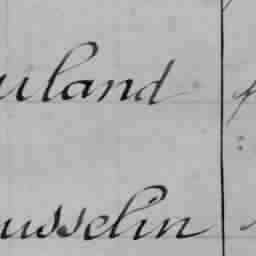 uiland
usselin